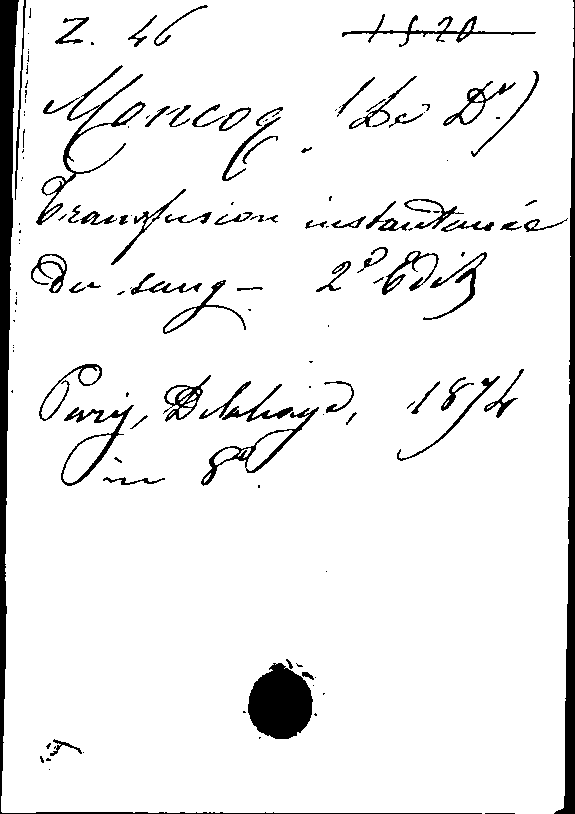 Z. 46 1.5.20
Moncoq. (Le Dr.)
Transfusion instantanée
du sang — 2e Edit
Paris, Delahaye, 1874
in 8o.